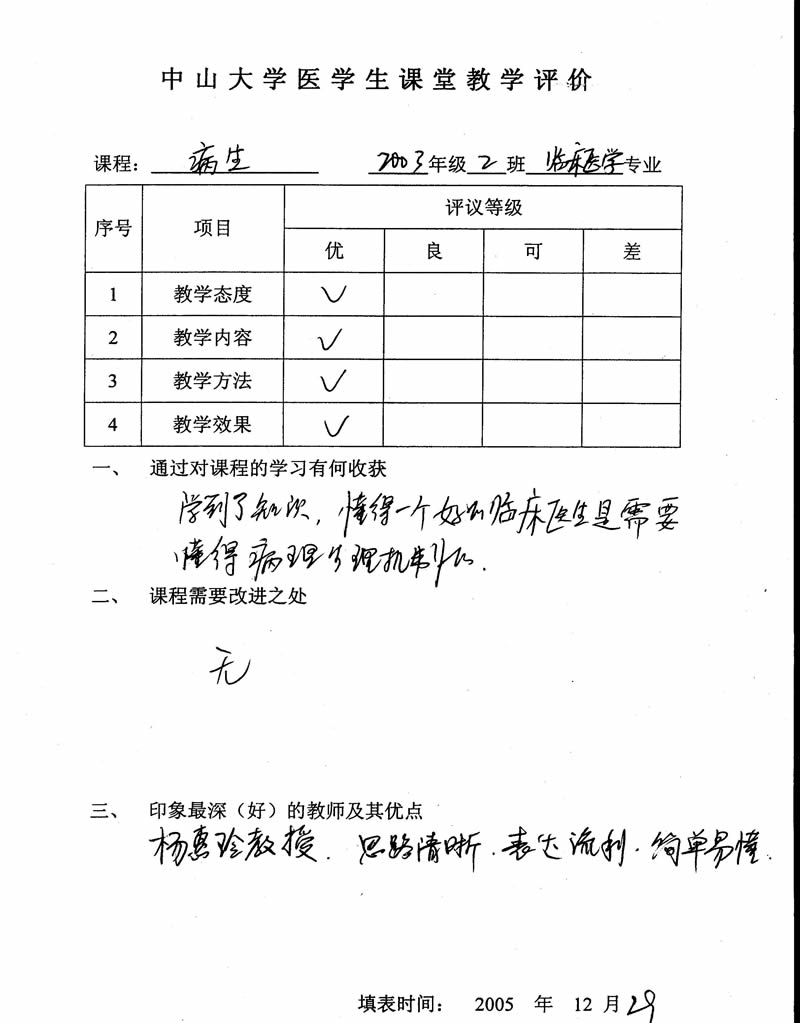 中山大学医学生课堂教学评价
课程： 病生 2003年级 2 班 临床医学专业
序号 项目 评议等级
优 良 可 差
1 教学态度 ✓
2 教学内容 ✓
3 教学方法 ✓
4 教学效果 ✓
一、 通过对课程的学习有何收获
学到了知识，懂得一个好的临床医生是需要
懂得病理生理机制的.
二、 课程需要改进之处
无
三、 印象最深（好）的教师及其优点
杨惠玲教授. 思路清晰.表达流利.简单易懂.
填表时间： 2005 年 12 月29